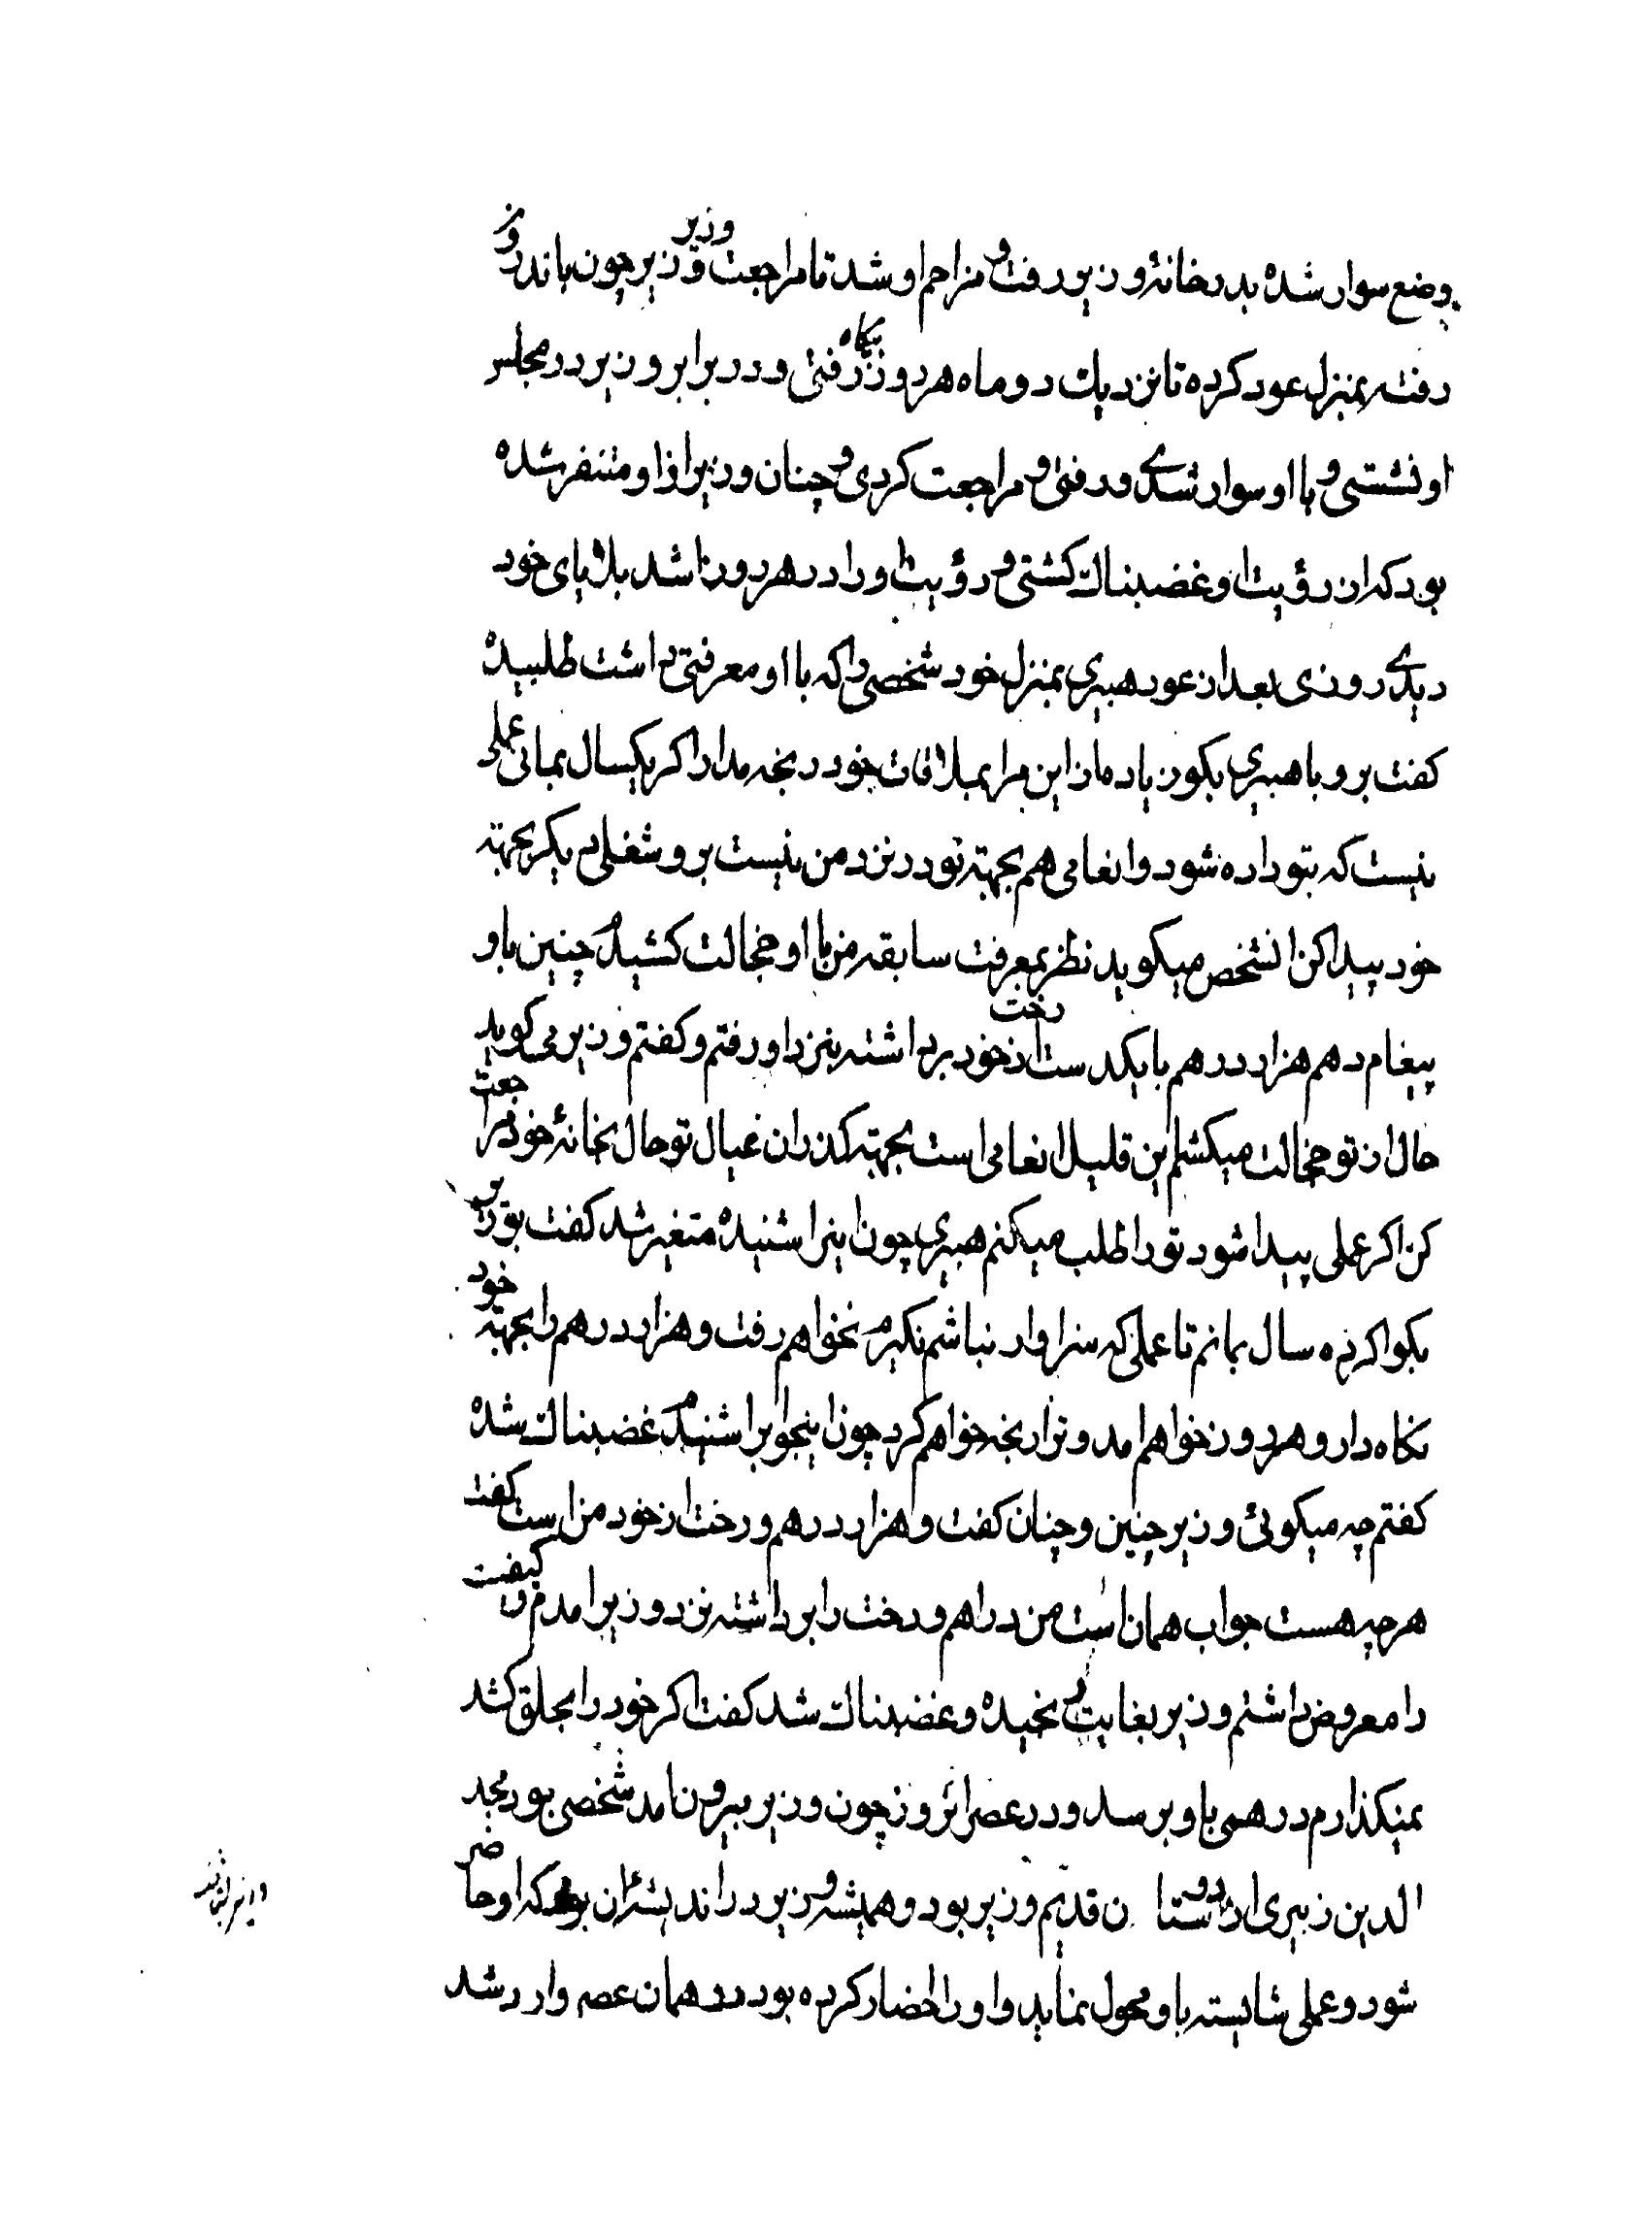 بوضع سوار شده بدرخانهٔ وزیر رفت و مزاحم او شد تا مراجعت وزیر وزیر چون باندرون
رفته بمنزل عود کرده تا نزدیك دو ماه هر روز پگاه رفتی و در برابر وزیر در مجلس
او نشستی و با او سوار شدی و رفتی و مراجعت کردی و چنان وزیر از او متنفر شده
بود که از رؤیت او غضبناك کشتی و رؤیت او را در هر روز اشد بلاهای خود
دیدی روزی بعد از عود هبیری بمنزل خود شخصی را که با او معرفتی داشت طلبیده
کفت برو با هبیری بکو زیاده از این مرا بملاقات خود رنجه مدار اکر یکسال بمانی عملی
نیست که بتو داده شود و انعامی هم بجهته تو در نزد من نیست برو شغلی دیکر بجهته
خود پیدا کن انشخص میکوید نظر بمعرفت سابقه من با او خجالت کشیدم چنین باو
پیغام دهم هزار درهم با یکدست رخت از خود برداشته بنزد او رفتم و کفتم وزیر می کوید
حال از تو خجالت میکشم این قلیل انعامی است بجهته کذران عیال تو حال بخانهٔ خود مراجعت
کن اکر عملی پیدا شود تو را طلب میکنم هبیری چون اینرا شنیده متغیر شد کفت بوزیر
بکو اکر ده سال بمانم تا عملی که سزاوار نباشم نکیرم نخواهم رفت و هزار درهم را بجهته خود
نکاه دار و هر روز خواهم امد و ترا رنجه خواهم کرد چون اینجواب را شنیدم غضبناك شده
کفتم چه میکوئی وزیر چنین و چنان کفت و هزار درهم و رخت از خود من است کفت
هر چه هست جواب همان است من دراهم و رخت را برداشته نزد وزیر امدم و کیفیت
را معروض داشتم وزیر بغایت رنجیده و غضبناك شد کفت اکر خود را بحلق کشد
نمیکذارم درهمی باو برسد و در عصر انروز چون وزیر بیرون امد شخصی بود مجد
الدین زبیری از دوستان قدیم وزیر بود و همیشه وزیر در اندیشهٔ ان بود که او حاضر
شود و عملی شایسته باو محول نماید و او را احضار کرده بود در همان عصر وارد شد